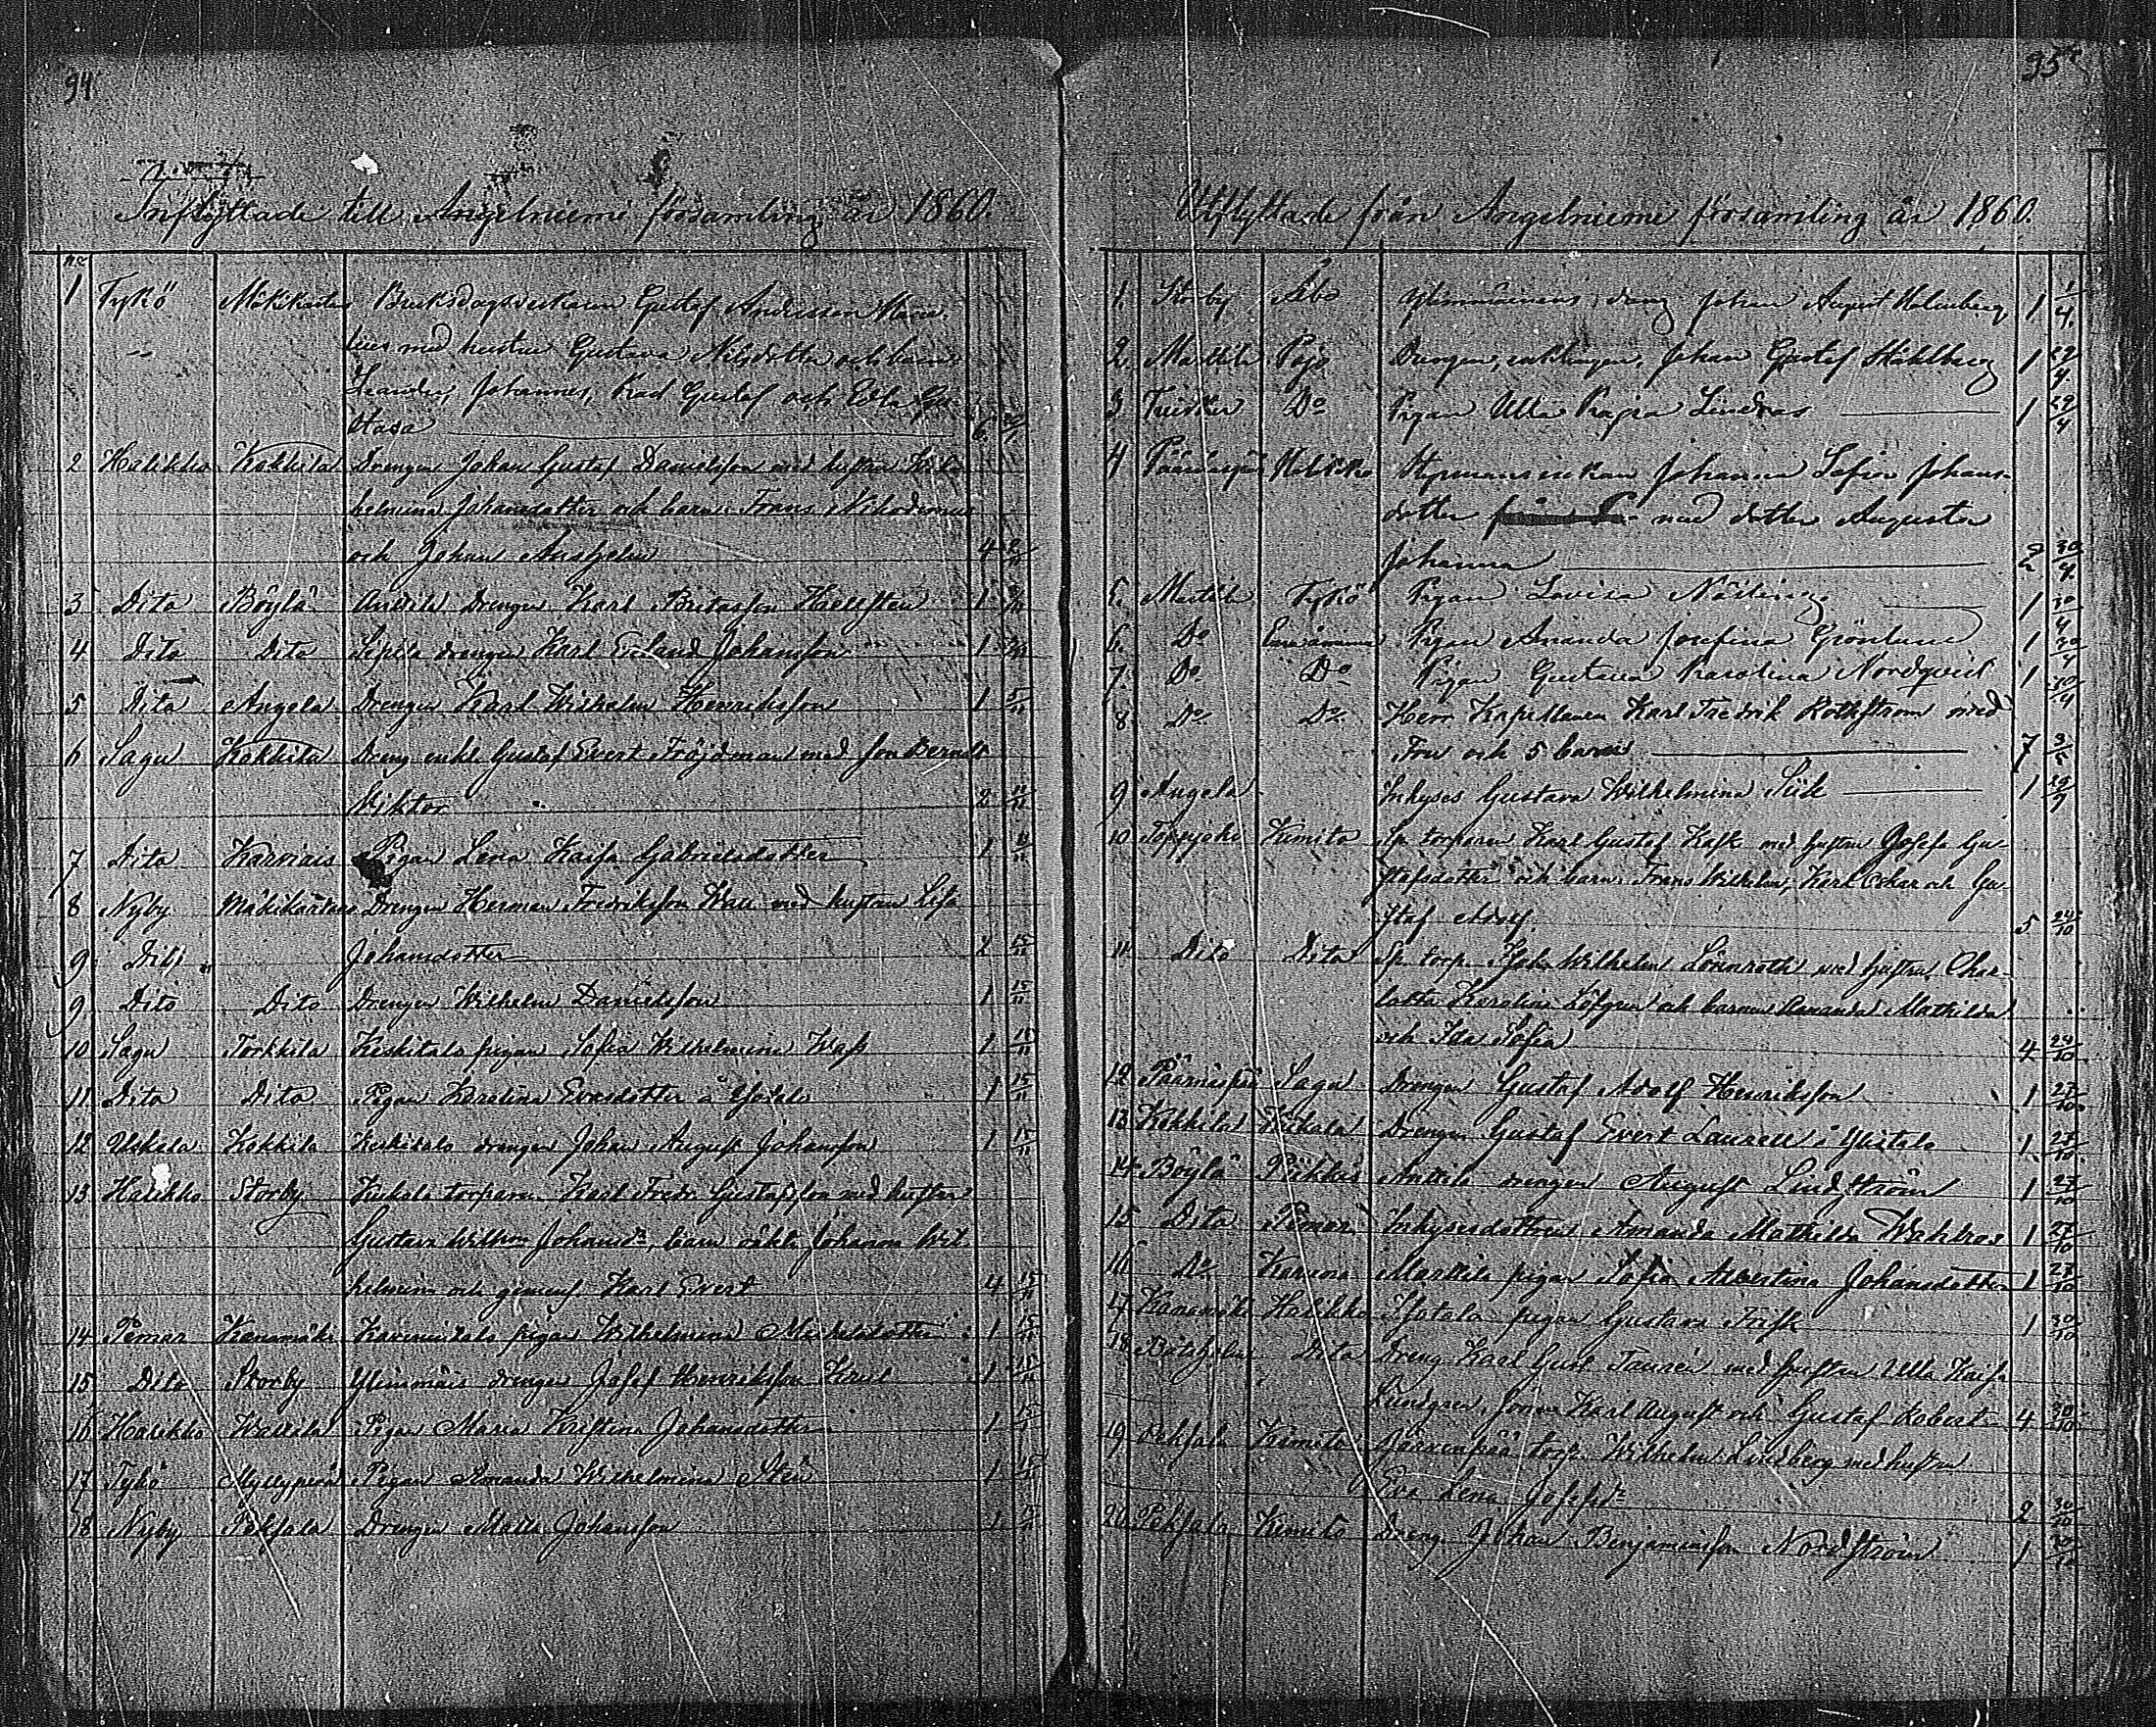 94
Inflyttade till Angelniemi församling år 1860.
no
1 Tykö Mäkikartano Bruksdagsverkaren Gustaf Andersson
med hustru Gustava Nilsdotter och barn
Leander, Johannes, Karl Gustaf och Edla Gu-
stava 6
2 Halikko Kokkila Drengen Johan Gustaf Danielsson med hustru Wil-
helmina Johansdotter och barn: Frans Nikodemus
och Johan Anshelm 4
3 Dito Böylä Anttila Drengen Karl Britasson Hellsten 1
4 Dito Dito Sipilä drengen Karl Erland Johansson 1
5 Dito Angela Drengen Karl Wilhelm Henriksson 1
6 Sagu Kokkila Dreng enkl. Gustaf Evert Fröjdman med son Berndt
Wiktor 2 11/11
7 Dito Karviais Pigan Lena Kaisa Gabrielsdotter 1 11/11
8 Nyby Mäkikartano Drengen Herman Fredriksson Wass med hustru Lisa
9 Dito Johansdotter 2 15/11
9 Dito Dito Drengen Wilhelm Danielsson 1 15/11
10 Sagu Torkkila Keskitalo pigan Sofia Wilhelmina Wass 1 15/11
11 Dito Dito Pigan Karolina Evasdotter å Isotalo 1 15/11
12 Uskela Kokkila Keskitalo drengen Johan August Johansson 1 15/11
13 Halikko Storby Kukola torparen Karl Fredr. Gustafsson med hustru
Gustava Wilhm Johansdr, barn oäkta Johanna Wil-
helmina och gemens. Karl Evert 4 15/11
14 Pemar Kanamäki pigan Wilhelmina Michelsdotter 1 15/11
15 Dito Storby Ylimmäis drengen Josef Henriksson 1 15/11
16 Halikko Wallila Pigan Maria Kristina Johansdotter 1 15/11
17 Tykö Myllyperä Pigan Amanda Wilhelmina Sten 1 15/11
18 Nyby Peksala Drengen Matts Johansson 1
95
Utflyttade från Angelniemi församling år 1860.
1. Storby Åbo Ylimmäinens dreng Johan August Holmberg 1 1/4.
2. Marttila Pojo Drengen, enklingen, Johan Gustaf Ståhlberg 1 29/4.
3 Do Pigan Ulla Kajsa Lindroos 1 29/4
4 Päärnäspää Halikko enkan Johanna Sofia Johans-
dotter med dotter Augusta
Johanna 2 30/4.
5. Marttila Tykö Pigan Lovisa Näsling 1 30/4
6. Do Pigan Amanda Josefina Grönlund 1 30/4
7. Do Do Pigan Gustava Karolina Nordqvist 1 30/4
8. Do Do Herr Kapellanen Karl Fredrik Rothström med
Fru och 5 barn 7 3/5
9 Angela Inhyses Gustava Wilhelmina Siik 1 29/9
10 Toppjoki Kimito Sp. torparen Karl Gustaf Kask med hustru Josefa Gu-
stafsdotter och barn: Frans Wilhelm, Karl Oskar och Gu-
staf Adolf. 5 24/10
11 Dito Dito Sp. torp. Joh. Wilhelm Lönnroth med hustru Char-
lotta Karolina Löfgren och barnen Amanda Mathilda
och Ida Sofia 4 24/10
12 Päärnäspää Sagu Drengen Gustaf Adolf Henriksson 1 27/10
13 Kokkila Uskela Drengen Gustaf Evert Laurell å Ylitalo 1 27/10.
14 Böylä Piikkis Anttila drengen August Lindström 1 27/10
15 Dito Pemar Inhysesdottren Amanda Mathilda Wahlroos 1 27/10
16 Do Karuna Marttila pigan Sofia Albertina Johansdotter 1 27/10
17 Kanamäki Halikko Isotalo pigan Gustava Frisk 1 30/10
18 Båtsholm Dito Dreng Karl Gust. Taurén med hustru Ulla Kaisa
Lundgren, söner Karl August och Gustaf Robert 4 30/10
19 Peksala Kimito torp. Wilhelm Lindberg med hustru
Eva Lena Josefsdr 2 30/10
20 Peksala Kimito Dreng Johan Benjaminsson Nordström 1 30/10